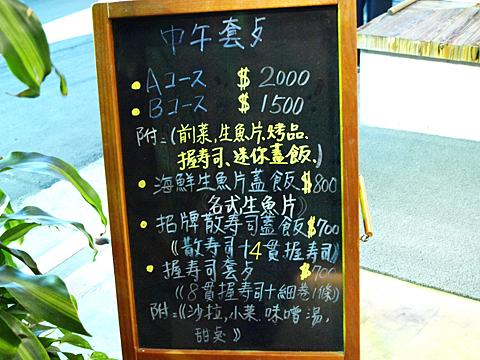 中午套歺
Aコース $2000
Bコース $1500
附=(前菜,生魚片,烤品、
握寿司、迷你蓋飯、)
海鮮生魚片蓋飯$800
名式生魚片
招牌散寿司蓋飯$700
《散寿司十4貫握寿司》
握寿司套歺 $700
《8貫握寿司十細卷1條》
附=《沙拉,小菜.味噌湯,
甜点》